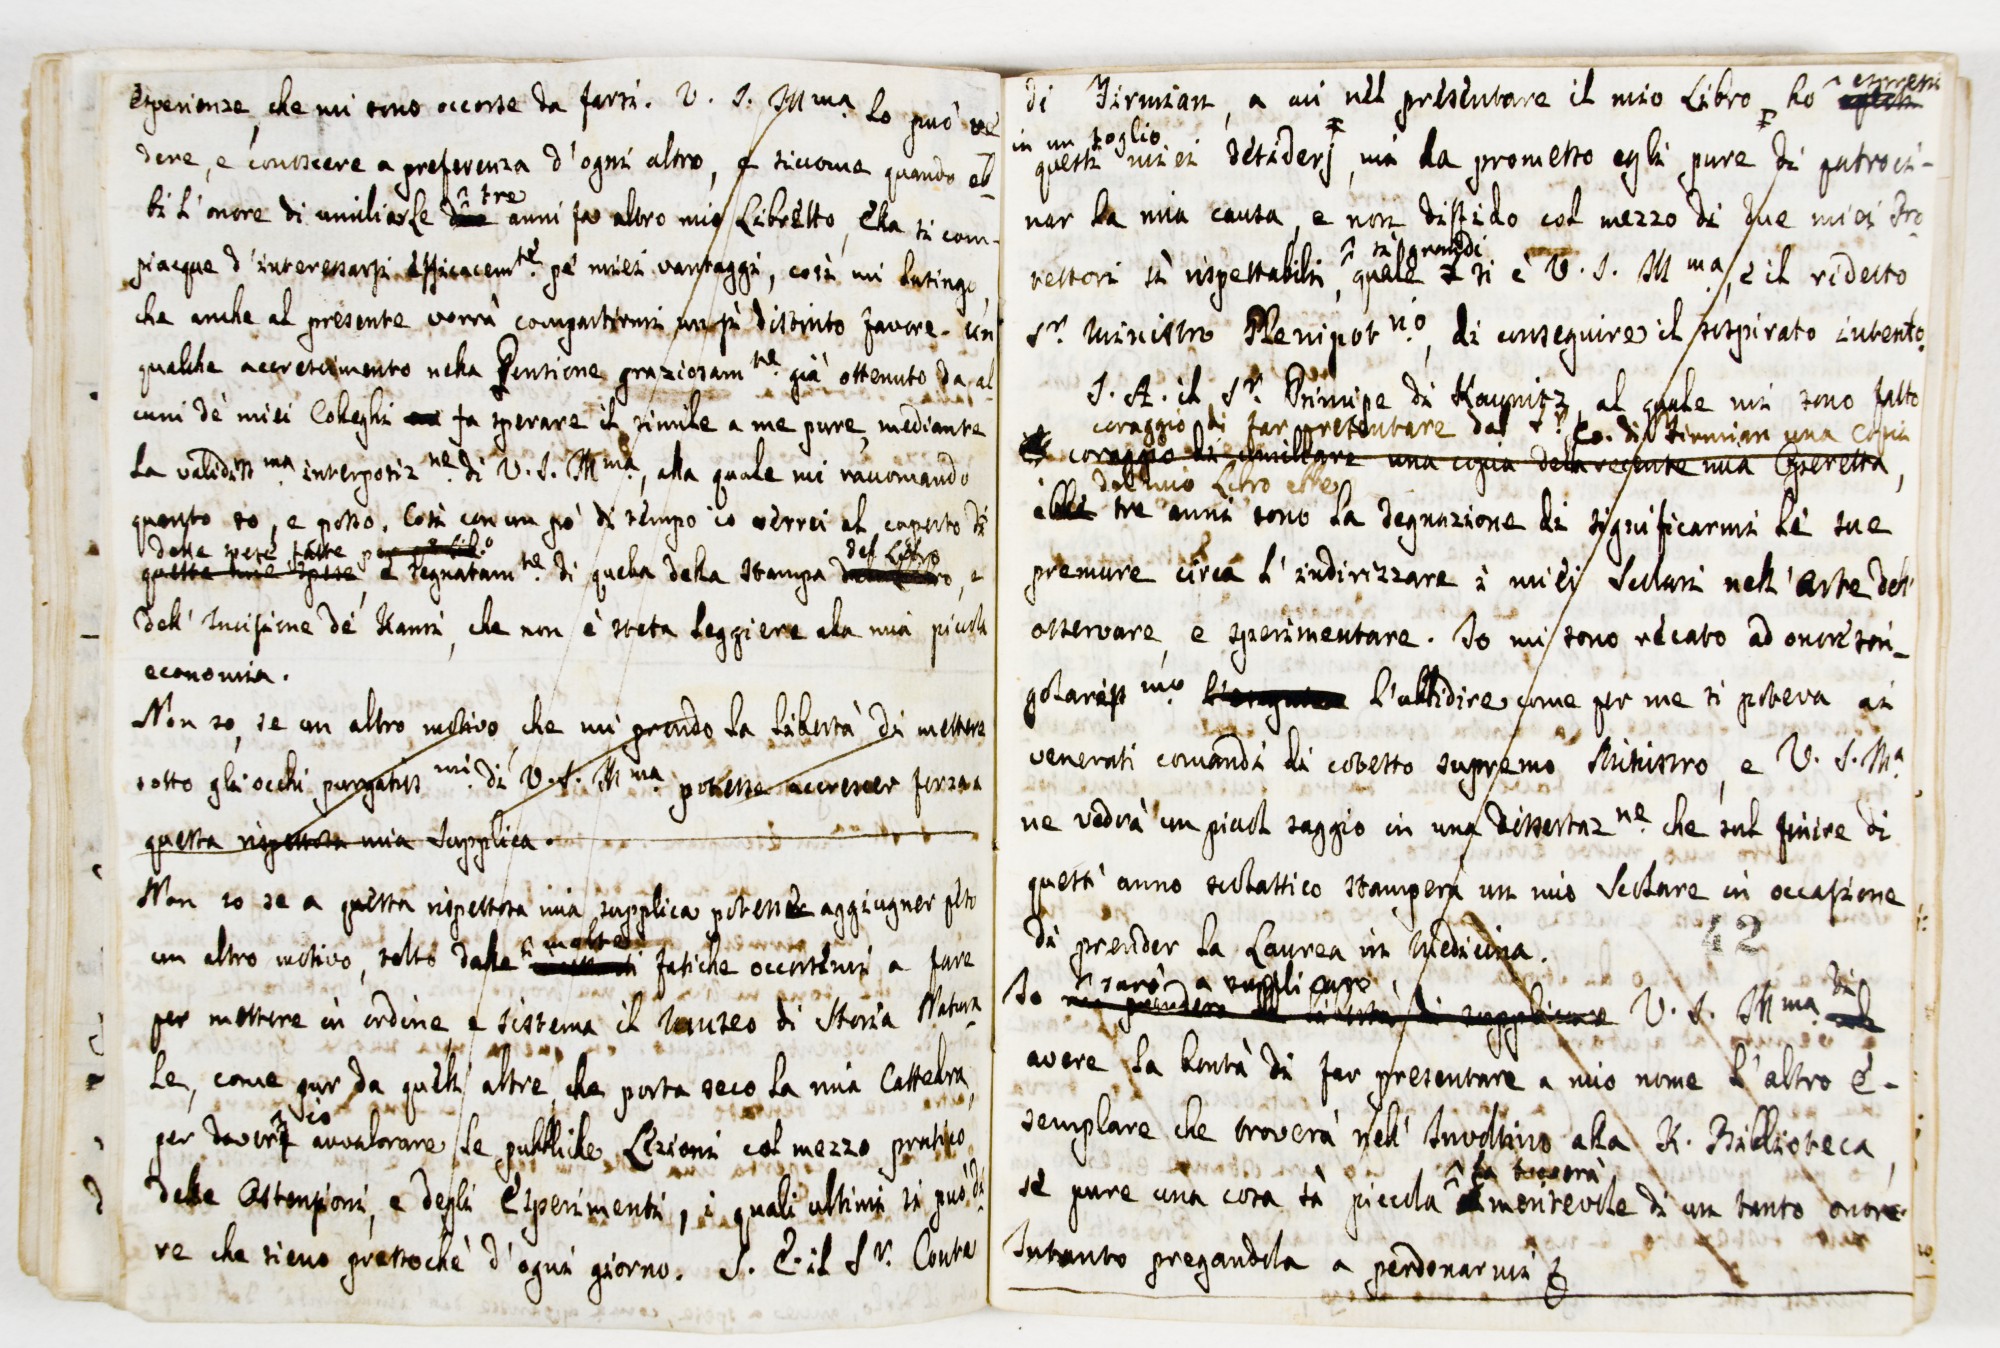 esperienze, che mi sono occorse da farsi. V. S. Ill.ma lo può ve
dere, e conoscere a preferenza d'ogni altro, e siccome quando eb
bi l'onore di umiliarle due tre anni fa altro mio Libretto, Ella si com-
piacque d'interessarsi efficacem.te pe' miei vantaggi, così mi lusingo,
che anche al presente vorrà compartirmi un sì distinto favore. Un
qualche accrescimento nella Pensione graziosam.te già ottenuto da al
cuni de' miei Colleghi fa sperare il simile a me pure, mediante
la validiss.ma interposiz.ne di V. S. Ill.ma, alla quale mi raccomando
quanto so, e posso. Così con un po' di tempo io verrei al coperto di
delle spese fatte
queste mie spese, e segnatam.te di quella della stampa del Libro, e
dell'Incisione de' Rami, che non è stata leggiere alla mia piccola
economia.
Non so, se un altro motivo, che mi prendo la libertà di mettere
sotto gli occhi purgatiss.mi di V. S. Ill.ma potesse accrescer forza a
questa rispettosa mia supplica.
Non so se a questa rispettosa mia supplica potesse aggiugner peso
un altro motivo, tolto dalle molte fatiche occorsemi a fare
per mettere in ordine e sistema il Museo di Storia Natura
le, come pur da quelle altre, che porta seco la mia Cattedra,
per dover io avvalorare le pubbliche Lezioni col mezzo pratico
delle Ostensioni, e degli Esperimenti, i quali ultimi si può di
re che sieno pressochè d'ogni giorno. S. E. il S.r Conte
di Firmian, a cui nel presentare il mio Libro, ho espressi
in un foglio
questi miei desiderj, mi ha promesso egli pure di patroci-
nar la mia causa, e non diffido col mezzo di due miei Pro
tettori sì rispettabili, sì grandi quale si è V. S. Ill.ma, e il ridetto
S.r Ministro Plenipot.n.o, di conseguire il sospirato intento.
S. A. il S.r Principe di Kaunitz, al quale mi sono fatto
coraggio di far presentare dal S.r Co. di Firmian una Copia
coraggio di umiliare una copia della recente mia Operetta,
del mio Libro ebbe
ebbe tre anni sono la degnazione di significarmi le sue
premure circa l'indirizzare i miei Scolari nell'Arte dell'
osservare, e sperimentare. Io mi sono recato ad onore sin-
golariss.mo l'ubbidire come per me si poteva ai
venerati comandi di cotesto supremo Ministro, e V. S. Ill.a
ne vedrà un piccol saggio in una Dissertaz.ne che sul finire di
quest'anno scolastico stamperà un mio Scolare in occasione
di prender la Laurea in Medicina.
42
sarò a supplicare
Io mi prendero la libertà di supplicare V. S. Ill.ma di
avere la bontà di far presentare a mio nome l'altro E-
semplare che troverà nell'Involtino alla R. Biblioteca,
se pure una cosa sì piccola la troverà meritevole di un tanto onore.
Intanto pregandola a perdonarmi